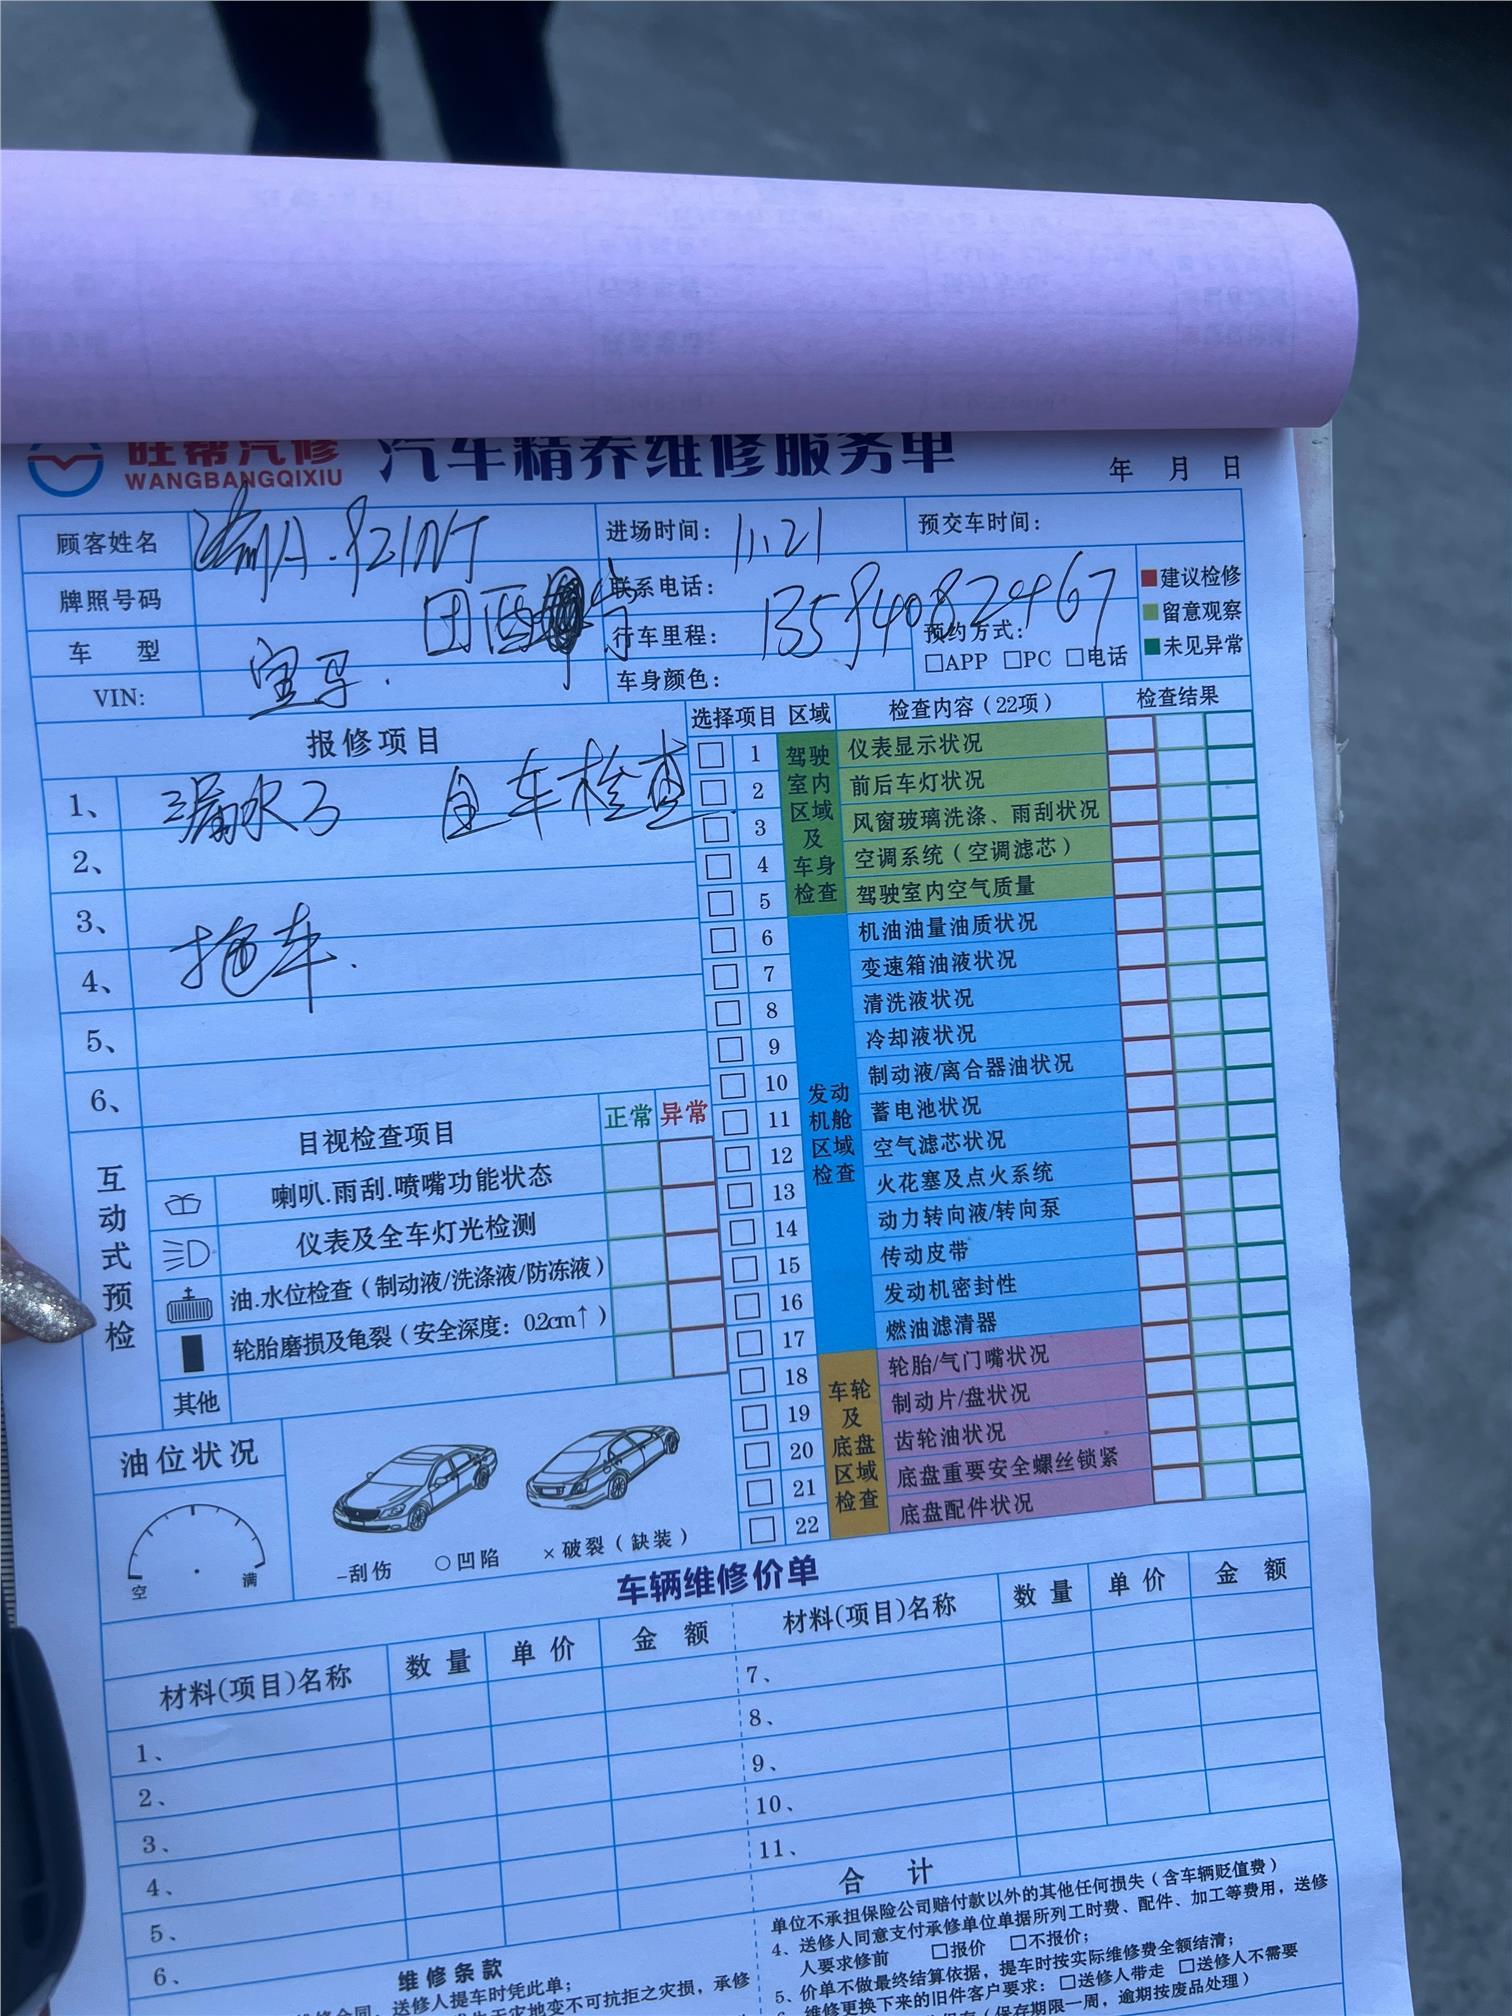 旺帮汽修 汽车精养维修服务单
WANGBANGQIXIU 年 月 日
顾客姓名 进场时间： 11.21 预交车时间：
牌照号码 联系电话：
车 型 宝马. 行车里程： 预约方式：
□APP □PC □电话
VIN: 车身颜色：
建议检修
留意观察
未见异常
报修项目
1、 漏水了 全车检查
2、
3、
4、 拖车.
5、
6、
选择项目 区域 检查内容（22项） 检查结果
驾驶室内区域及车身检查
1 仪表显示状况
2 前后车灯状况
3 风窗玻璃洗涤、雨刮状况
4 空调系统（空调滤芯）
5 驾驶室内空气质量
发动机舱区域检查
6 机油油量油质状况
7 变速箱油液状况
8 清洗液状况
9 冷却液状况
10 制动液/离合器油状况
11 蓄电池状况
12 空气滤芯状况
13 火花塞及点火系统
14 动力转向液/转向泵
15 传动皮带
16 发动机密封性
17 燃油滤清器
车轮及底盘区域检查
18 轮胎/气门嘴状况
19 制动片/盘状况
20 齿轮油状况
21 底盘重要安全螺丝锁紧
22 底盘配件状况
互动式预检
目视检查项目 正常 异常
喇叭.雨刮.喷嘴功能状态
仪表及全车灯光检测
油.水位检查（制动液/洗涤液/防冻液）
轮胎磨损及龟裂（安全深度：0.2cm↑）
其他
油位状况
空 满
-刮伤 ○凹陷 ×破裂（缺装）
车辆维修价单
材料(项目)名称 数 量 单 价 金 额 材料(项目)名称 数 量 单 价 金 额
1、 7、
2、 8、
3、 9、
4、 10、
5、 11、
6、 合 计
维修条款
送修人提车时凭此单；
无灾地变不可抗拒之灾损，承修
单位不承担保险公司赔付款以外的其他任何损失（含车辆贬值费）
4、送修人同意支付承修单位单据所列工时费、配件、加工等费用，送修
人要求修前 □报价 □不报价；
5、价单不做最终结算依据，提车时按实际维修费全额结清；
维修更换下来的旧件客户要求：□送修人带走 □送修人不需要
（保存期限一周，逾期按废品处理）